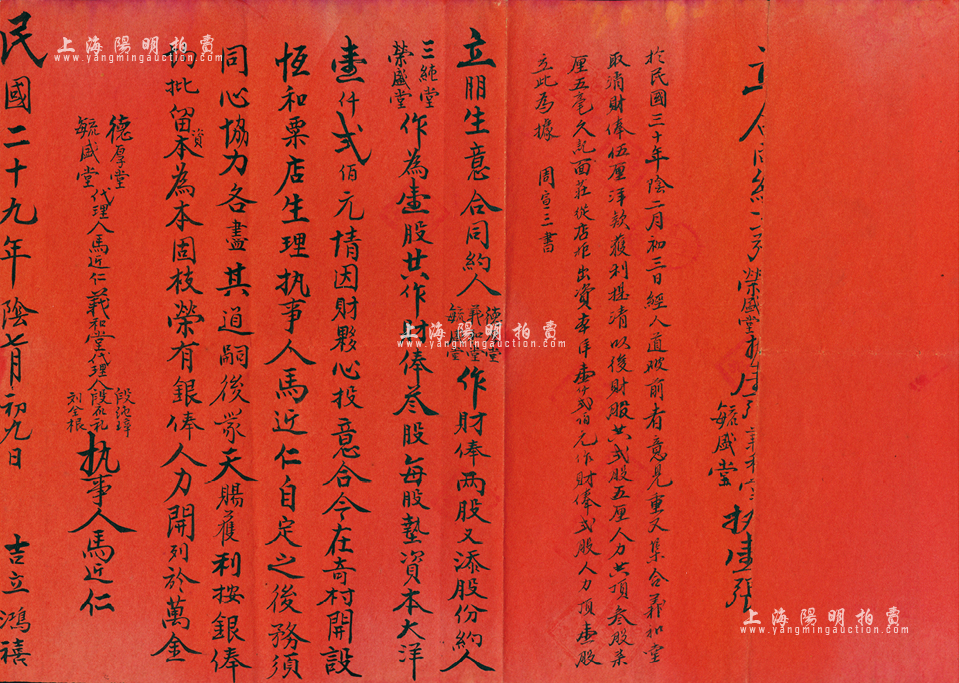 榮盛堂執壹張
毓盛堂執壹張
於民國三十年陰二月初三日經人道破前者意見重又集合義和堂
取消財俸伍厘洋款獲利搓清以後財股共弍股五厘人力共頂叁股柒
厘五毫久記面莊從店拒出資本洋壹仟弍佰元作財俸弍股人力頂壹股
立此為據 周宣三書
立朋生意合同約人德厚堂義和堂毓盛堂作財俸两股又添股份約人
三純堂榮盛堂作為壹股共作財俸叁股每股墊資本大洋
壹仟弍佰元情因財夥心投意合今在奇村開設
恆和粟店生理执事人馬近仁自定之後務須
同心協力各盡其道嗣後蒙天賜獲利按銀俸
均批留資本為本固枝榮有銀俸人力開列於萬金
德厚堂毓盛堂代理人馬近仁義和堂代理人段 礼 刘全根执事人馬近仁
民國二十九年陰七月初九日 吉立鴻禧
上海陽明拍賣
www.yangmingauction.com
上海陽明拍賣
www.yangmingauction.com
上海陽明拍賣
www.yangmingauction.com